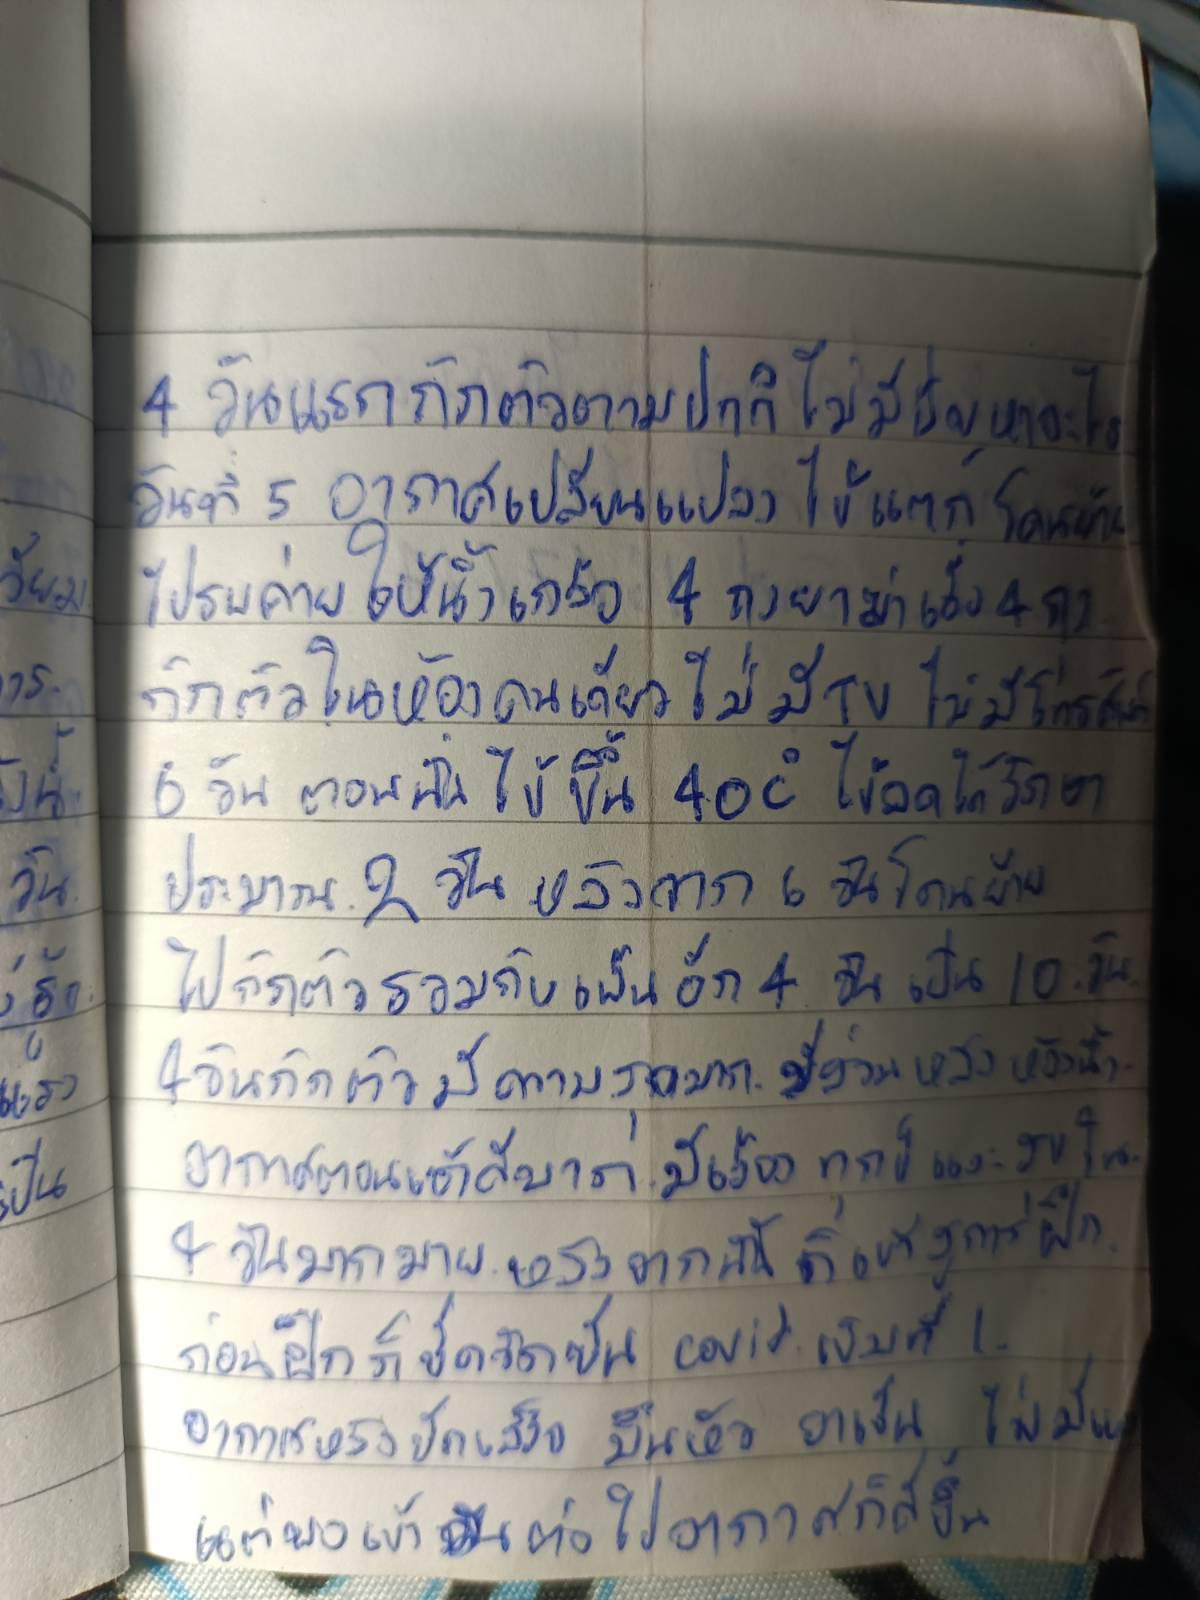 4 วันแรกกักตัวตามปกติ ไม่มีปัญหาอะไร
วันที่ 5 อากาศเปลี่ยนแปลง ไข้แตก โดนย้าย
ไปรพค่าย ให้น้ำเกลือ 4 ถุงยาฆ่าเชื้อ 4 ถุง
กักตัวในห้องคนเดียว ไม่มี TV ไม่มีโทรศัพท์
6 วัน ตอนนั้น ไข้ขึ้น 40c° ไข้ลดได้รักษา
ประมาณ. 2 วัน หลังจาก 6 วันโดนย้าย
ไปกักตัวรวมกับเพื่อนอีก 4 วัน เป็น 10 วัน.
4 วันกักตัวมีความสุขมาก. หลัง ห้องน้ำ.
อากาศตอนเช้าดีมาก มีเรื่อง ทุกข์ และ สุข ใน.
4 วันมากมาย. หลังจากนั้น ก็เข้าสู่การฝึก.
ก่อนฝึกก็ฉีดวัคซีน covid. เข็มที่ 1.
อาการหลังฉีดเสร็จ มึนหัว อาเจียน ไม่มี
แต่พอเข้าวันต่อไปอาการก็ดีขึ้น